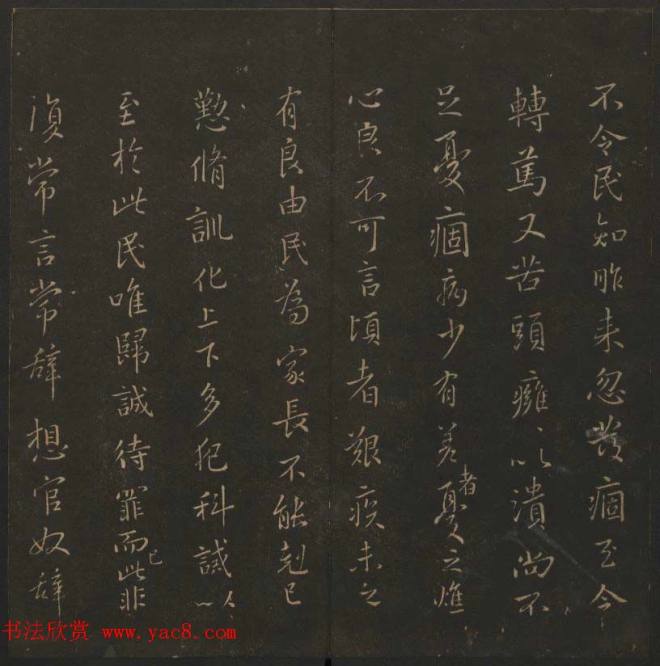 不令民知昨来忽發痼至今
轉篤又苦頭癰癰以潰尚不
足憂痼病少有差者憂之燋
心良不可言頃者艱疾未之
有良由民為家長不能剋己
懃脩訓化上下多犯科誡以
至於此民唯歸誠待罪而已此非
復常言常辭想官奴辭
书法欣赏 www.yac8.com